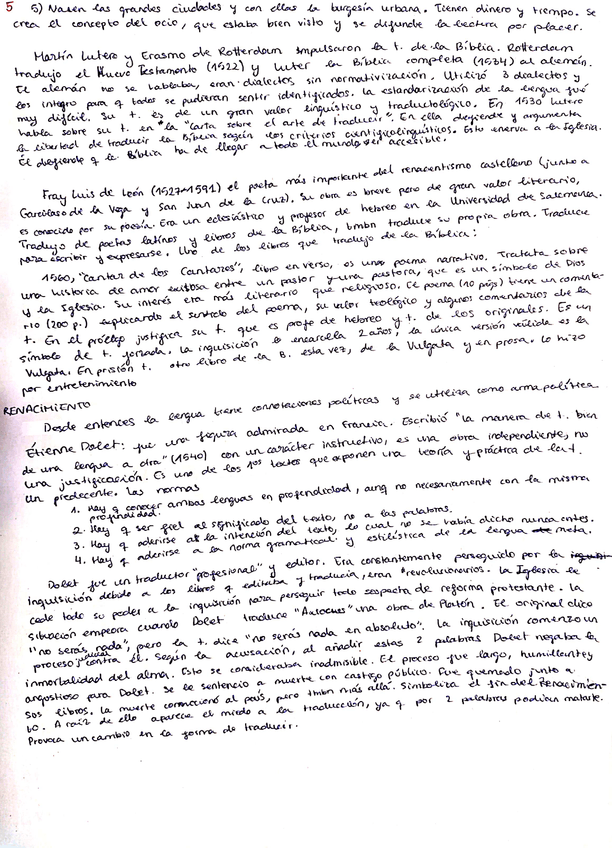 5 5) Nacen las grandes ciudades y con ellas la burgesía urbana. Tienen dinero y tiempo. Se
crea el concepto del ocio, que estaba bien visto y se difunde la lectura por placer.
Martín Lutero y Erasmo de Rotterdam impulsaron la t. de la Bíblia. Rotterdam
tradujo el Nuevo Testamento (1522) y Luter la Bíblia completa (1534) al alemán.
El alemán no se hablaba, eran dialectos, sin normativización. Utilizó 3 dialectos y
los integró para q todos se pudieran sentir identificados. La estandarización de la lengua fué
muy difícil. Su t. es de un gran valor linguístico y traductológico. En 1530 Lutero
habla sobre su t. en "la "Carta sobre el arte de traducir". En ella defiende y argumenta
la libertad de traducir la Bíblia según los criterios cientificolinguísticos. Esto enerva a la Iglesia.
Él defiende q la Bíblia ha de llegar a todo el mundo y ser accesible.
Fray Luis de León (1527-1591) el poeta más importante del renacentismo castellano (junto a
Garcilaso de la Vega y San Juan de la Cruz). Su obra es breve pero de gran valor literario,
es conocido por su poesía. Era un eclesiástico y profesor de hebreo en la Universidad de Salamanca.
Tradujo de poetas latinos y libros de la Bíblia, tmbn traduce su propia obra. Traduce
para escribir y expresarse. Uno de los libros que tradujo de la Bíblia:
1560, "Cantar de los Cantares", libro en verso, es una poema narrativo. Tratata sobre
una historia de amor exitosa entre un pastor y una pastora, que es un símbolo de Dios
y la Iglesia. Su interés era más literario que religioso. El poema (10 págs) tiene un comenta-
rio (200 p.) explicando el sentido del poema, su valor teológico y algunos comentarios de la
t. En el prólogo justifica su t. que es profe de hebreo y t. de los originales. Es un
símbolo de t. forzada. La inquisición lo encarcela 2 años, la única versión válida es la
Vulgata. En prisión t. otro libro de la B. esta vez, de la Vulgata y en prosa. Lo hizo
por entretenimiento
RENACIMIENTO
Desde entonces la lengua tiene connotaciones políticas y se utiliza como arma política.
Étienne Dolet: fue una figura admirada en Francia. Escribió "La manera de t. bien
de una lengua a otra" (1540) con un carácter instructivo, es una obra independiente, no
una justificación. Es uno de los 1os textos que exponen una teoría y práctica de la t.
Un predecente. Las normas
1. Hay q conocer ambas lenguas en profundidad, aunq no necesariamente con la misma
profundidad.
2. Hay q ser fiel al significado del texto, no a las palabras.
3. Hay q aderirse al la intención del texto, lo cual no se había dicho nunca antes.
4. Hay q aderirse a la norma gramatical y estilística de la lengua meta.
Dolet fue un traductor "profesional" y editor. Era constantemente perseguido por la
inquisición debido a los libros q editaba y traducía, eran "revolucionarios. La Iglesia le
cede todo su poder a la inquisición para perseguir todo sospecha de reforma protestante. La
situación empeora cuando Dolet traduce una obra de Platón. El original dice
"no serás nada", pero la t. dice "no serás nada en absoluto". La inquisición comienza un
proceso judicial contra él. Según la acusación, al añadir estas 2 palabras Dolet negaba la
inmortalidad del alma. Esto se consideraba inadmisible. El proceso fue largo, humillante y
angostioso para Dolet. Se le sentenció a muerte con castigo público. Fue quemado junto a
sos libros. La muerte conmocionó al país, pero tmbn más allá. Simboliza el fin del Renacimien-
to. A raíz de ello aparece el miedo a la traducción, ya q por 2 palabras podían matarte.
Provoca un cambio en la forma de traducir.